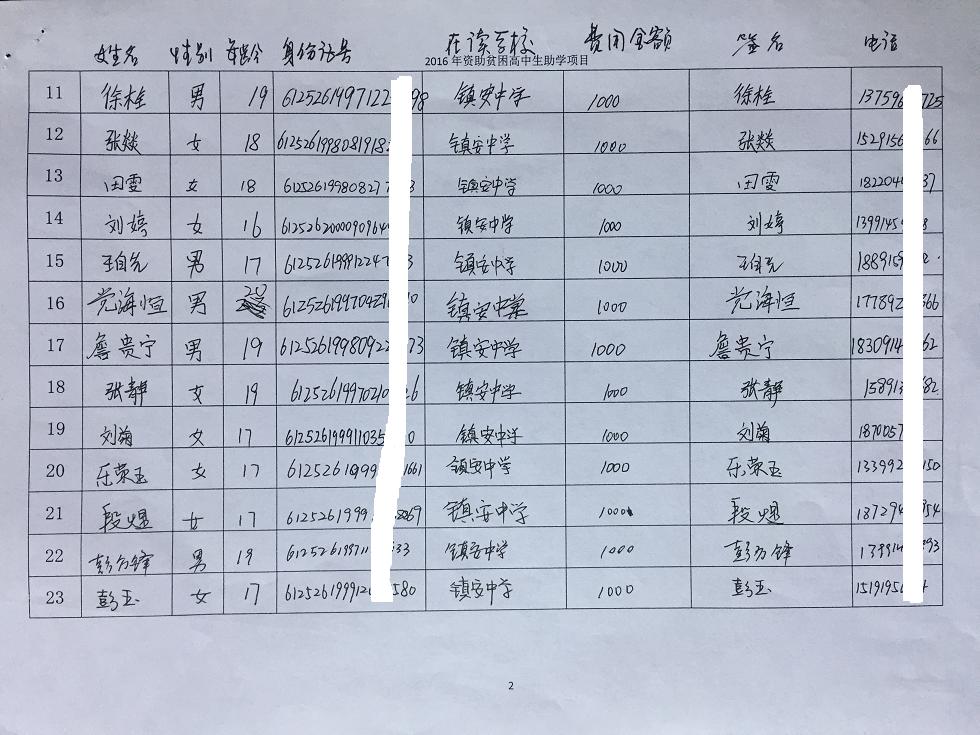 姓名 性别 年龄 身份证号 在读学校 费用金额 签名 电话
2016 年资助贫困高中生助学项目
11 徐栓 男 19 6125261997122 98 镇安中学 1000 徐栓 13759 725
12 张燚 女 18 6125261998081918 镇安中学 1000 张燚 1529156 66
13 田雯 女 18 61252619980827 3 镇安中学 1000 田雯 182204 37
14 刘婷 女 16 612526200009096 镇安中学 1000 刘婷 1399145 8
15 男 17 6125261999122 3 镇安中学 1000 188915
16 党海恒 男 20 612526199704 0 镇安中学 1000 党海恒 177892 366
17 詹贵宁 男 19 61252619980922 73 镇安中学 1000 詹贵宁 1830914 62
18 张静 女 19 6125261997021 6 镇安中学 1000 张静 158913 82
19 刘菊 女 17 612526199911035 0 镇安中学 1000 刘菊 1870057
20 乐荣玉 女 17 612526199 1661 镇安中学 1000 乐荣玉 133992 150
21 段煜 女 17 6125261999 069 镇安中学 1000 段煜 187294 354
22 彭方锋 男 19 612526199711 33 镇安中学 1000 彭方锋 139914 393
23 彭玉 女 17 61252619991 580 镇安中学 1000 彭玉 1519195
2